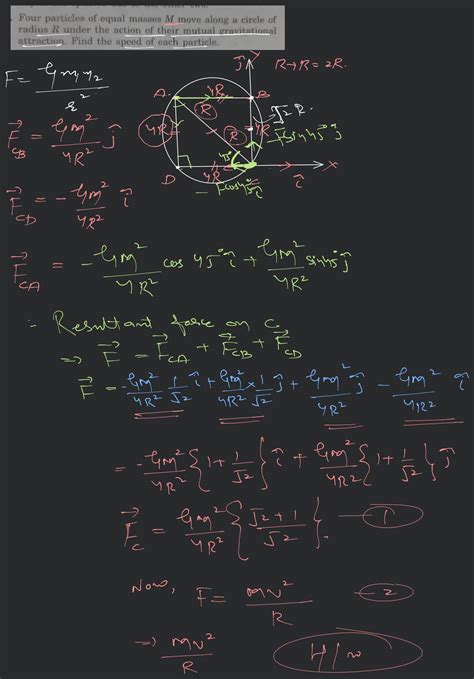 Four particles of equal masses M move along a circle of
radius R under the action of their mutual gravitational
attraction. Find the speed of each particle.
F = Gm₁m₂ / r²
R→R = 2R.
J Y
A 4R B
R √2 R.
4R R 4R
-Fsin45° ĵ
45°
D 4R → X
-Fcos45° î î
F⃗_CB = GM² / 4R² ĵ
F⃗_CD = -GM² / 4R² î
F⃗_CA = -GM² / 4R² cos 45° î + GM² / 4R² sin45° ĵ
∴ Resultant force on C
⇒ F⃗ = F⃗_CA + F⃗_CB + F⃗_CD
F⃗ = -GM² / 4R² 1/√2 î + GM² / 4R² × 1/√2 ĵ + GM² / 4R² ĵ - GM² / 4R² î
= -GM² / 4R² {1 + 1/√2} î + GM² / 4R² {1 + 1/√2} ĵ
F⃗_C = GM² / 4R² {√2 + 1 / √2}. — 1
Now, F = mv² / R — 2
⇒ mv² / R
H/w